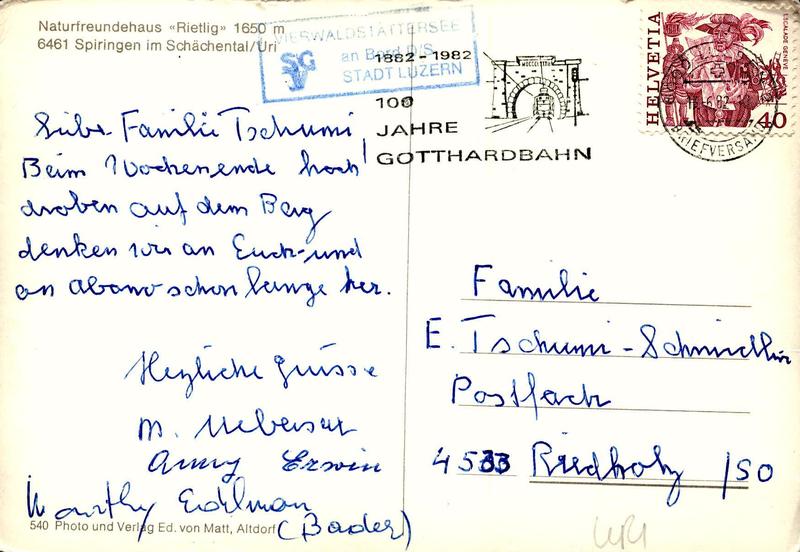 Naturfreundehaus «Rietlig» 1650 m
6461 Spiringen im Schächental/Uri
VIERWALDSTÄTTERSEE
SGV
an Bord D/S
STADT LUZERN
1882-1982
100
JAHRE
GOTTHARDBAHN
HELVETIA
ESCALADE GENÈVE
40
BRIEFVERSAND
Liebe Familie Tschumi!
Beim Wochenende hoch
droben auf dem Berg
denken wir an Euch und
an Abano schon lange her.
Herzliche Grüsse
M. Uebersax
Anny Erwin
Marthy Edelman
(Bader)
Familie
E. Tschumi-Schmidlin
Postfach
4533 Riedholz /SO
540 Photo und Verlag Ed. von Matt, Altdorf
URI